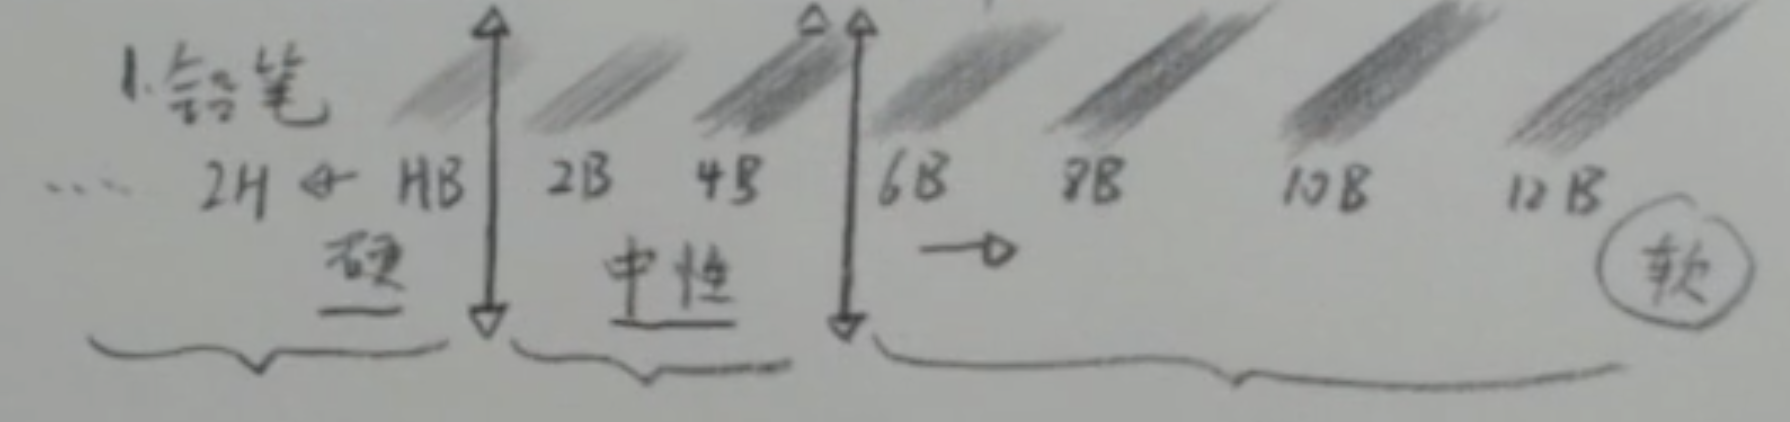 1. 铅笔
... 2H ← HB 2B 4B 6B 8B 10B 12B
硬 中性 → 软